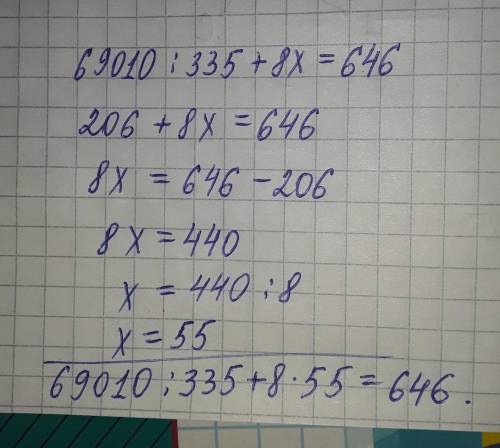 69010 : 335 + 8x = 646
206 + 8x = 646
8x = 646 - 206
8x = 440
x = 440 : 8
x = 55
69010 : 335 + 8 · 55 = 646.